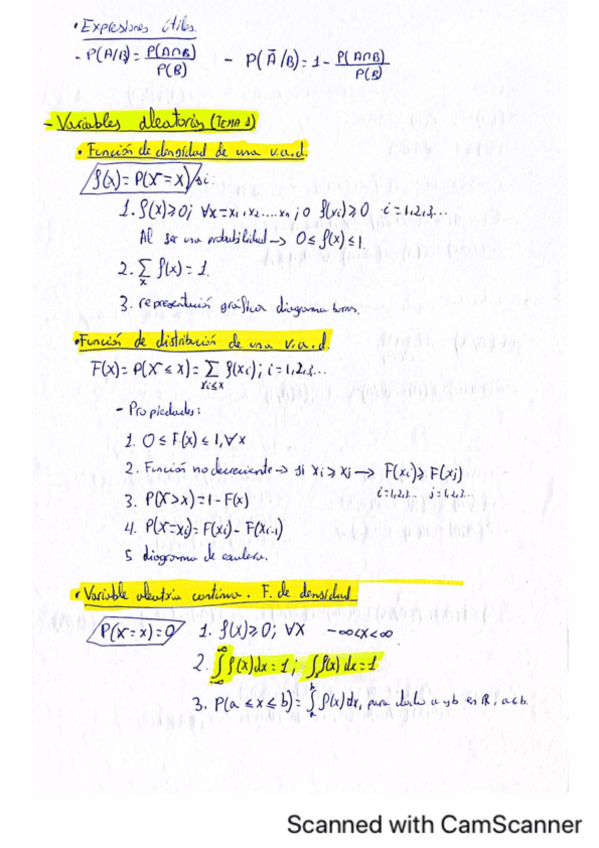 • Expresiones útiles.
- P(A/B) = P(A∩B)/P(B) - P(Ā/B) = 1 - P(A∩B)/P(B)
- Variables aleatorias (TEMA 1)
• Función de densidad de una v.a.d.
f(x) = P(X = x) / si:
1. f(x) ≥ 0; ∀x = x₁, x₂ .... xₙ ; o f(xᵢ) ≥ 0 i = 1,2,3...
Al ser una probabilidad → 0 ≤ f(x) ≤ 1
2. ∑ₓ f(x) = 1.
3. representación gráfica diagrama barras.
• Función de distribución de una v.a.d.
F(x) = P(X ≤ x) = ∑ f(xᵢ); i = 1,2,3...
xᵢ ≤ x
- Propiedades:
1. 0 ≤ F(x) ≤ 1, ∀x
2. Función no decreciente → si xᵢ ≥ xⱼ → F(xᵢ) ≥ F(xⱼ)
i = 1,2,3... j = 1,2,3...
3. P(X > x) = 1 - F(x)
4. P(X = xᵢ) = F(xᵢ) - F(xᵢ₋₁)
5 diagrama de escalera.
• Variable aleatoria continua. F. de densidad
P(X = x) = 0 1. f(x) ≥ 0; ∀x -∞ < x < ∞
2. ∫₋∞^∞ f(x) dx = 1 ; ∫ₓ f(x) dx = 1
3. P(a ≤ x ≤ b) = ∫ₐᵇ f(x) dx, para a y b en ℝ ; a ≤ b.
Scanned with CamScanner